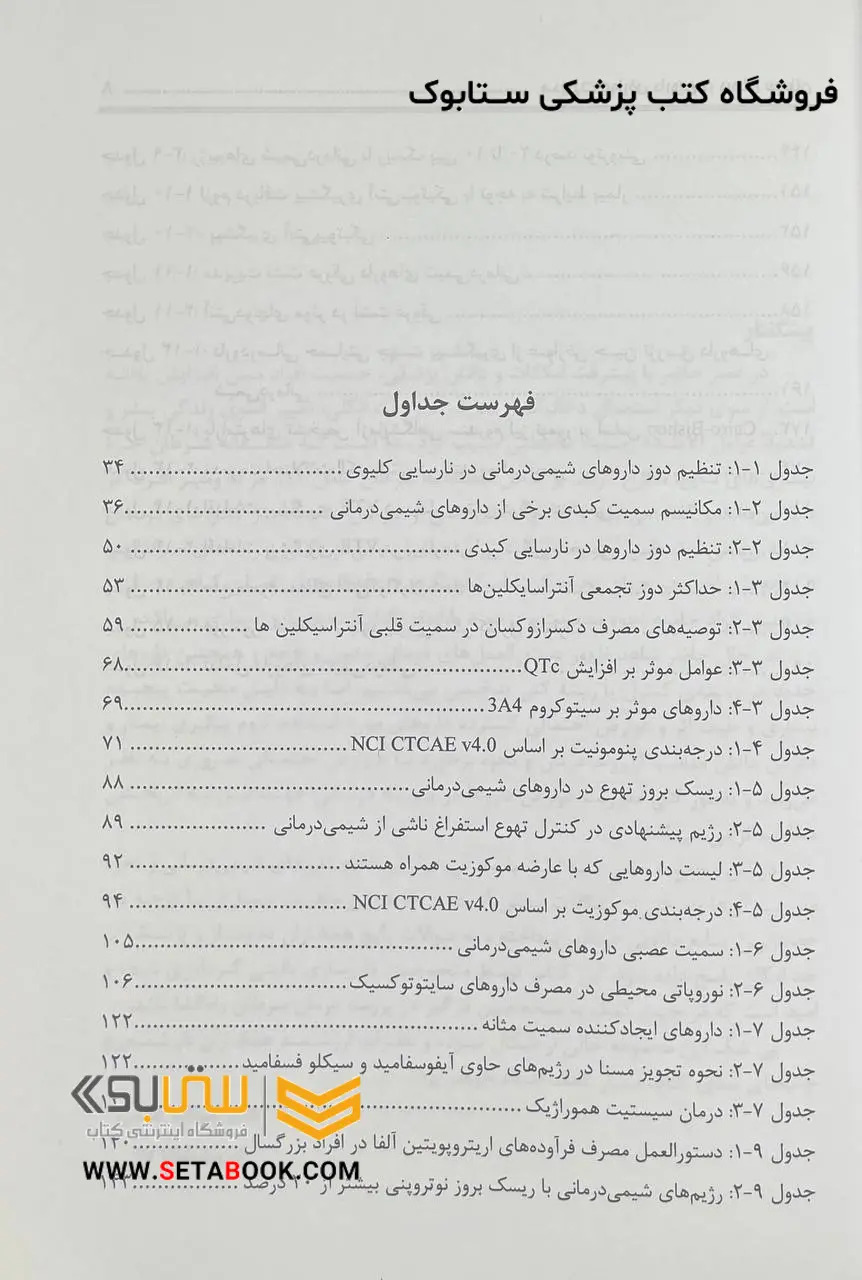 فروشگاه کتب پزشکی ستابوک
فهرست جداول
جدول ۱-۱: تنظیم دوز داروهای شیمی‌درمانی در نارسایی کلیوی ........ ۳۴
جدول ۲-۱: مکانیسم سمیت کبدی برخی از داروهای شیمی‌درمانی ........ ۳۶
جدول ۲-۲: تنظیم دوز داروها در نارسایی کبدی ........ ۵۰
جدول ۳-۱: حداکثر دوز تجمعی آنتراسایکلین‌ها ........ ۵۳
جدول ۳-۲: توصیه‌های مصرف دکسرازوکسان در سمیت قلبی آنتراسیکلین ها ........ ۵۹
جدول ۳-۳: عوامل موثر بر افزایش QTc ........ ۶۸
جدول ۳-۴: داروهای موثر بر سیتوکروم 3A4 ........ ۶۹
جدول ۴-۱: درجه‌بندی پنومونیت بر اساس NCI CTCAE v4.0 ........ ۷۱
جدول ۵-۱: ریسک بروز تهوع در داروهای شیمی‌درمانی ........ ۸۸
جدول ۵-۲: رژیم پیشنهادی در کنترل تهوع استفراغ ناشی از شیمی‌درمانی ........ ۸۹
جدول ۵-۳: لیست داروهایی که با عارضه موکوزیت همراه هستند ........ ۹۲
جدول ۵-۴: درجه‌بندی موکوزیت بر اساس NCI CTCAE v4.0 ........ ۹۴
جدول ۶-۱: سمیت عصبی داروهای شیمی‌درمانی ........ ۱۰۵
جدول ۶-۲: نوروپاتی محیطی در مصرف داروهای سایتوتوکسیک ........ ۱۰۶
جدول ۷-۱: داروهای ایجادکننده سمیت مثانه ........ ۱۲۲
جدول ۷-۲: نحوه تجویز مسنا در رژیم‌های حاوی آیفوسفامید و سیکلو فسفامید ........ ۱۲۲
جدول ۷-۳: درمان سیستیت هموراژیک ........
جدول ۹-۱: دستورالعمل مصرف فرآورده‌های اریتروپویتین آلفا در افراد بزرگسال ........
جدول ۹-۲: رژیم‌های شیمی‌درمانی با ریسک بروز نوتروپنی بیشتر از ۲۰ درصد ........
ستابوک
فروشگاه اینترنتی کتاب
WWW.SETABOOK.COM